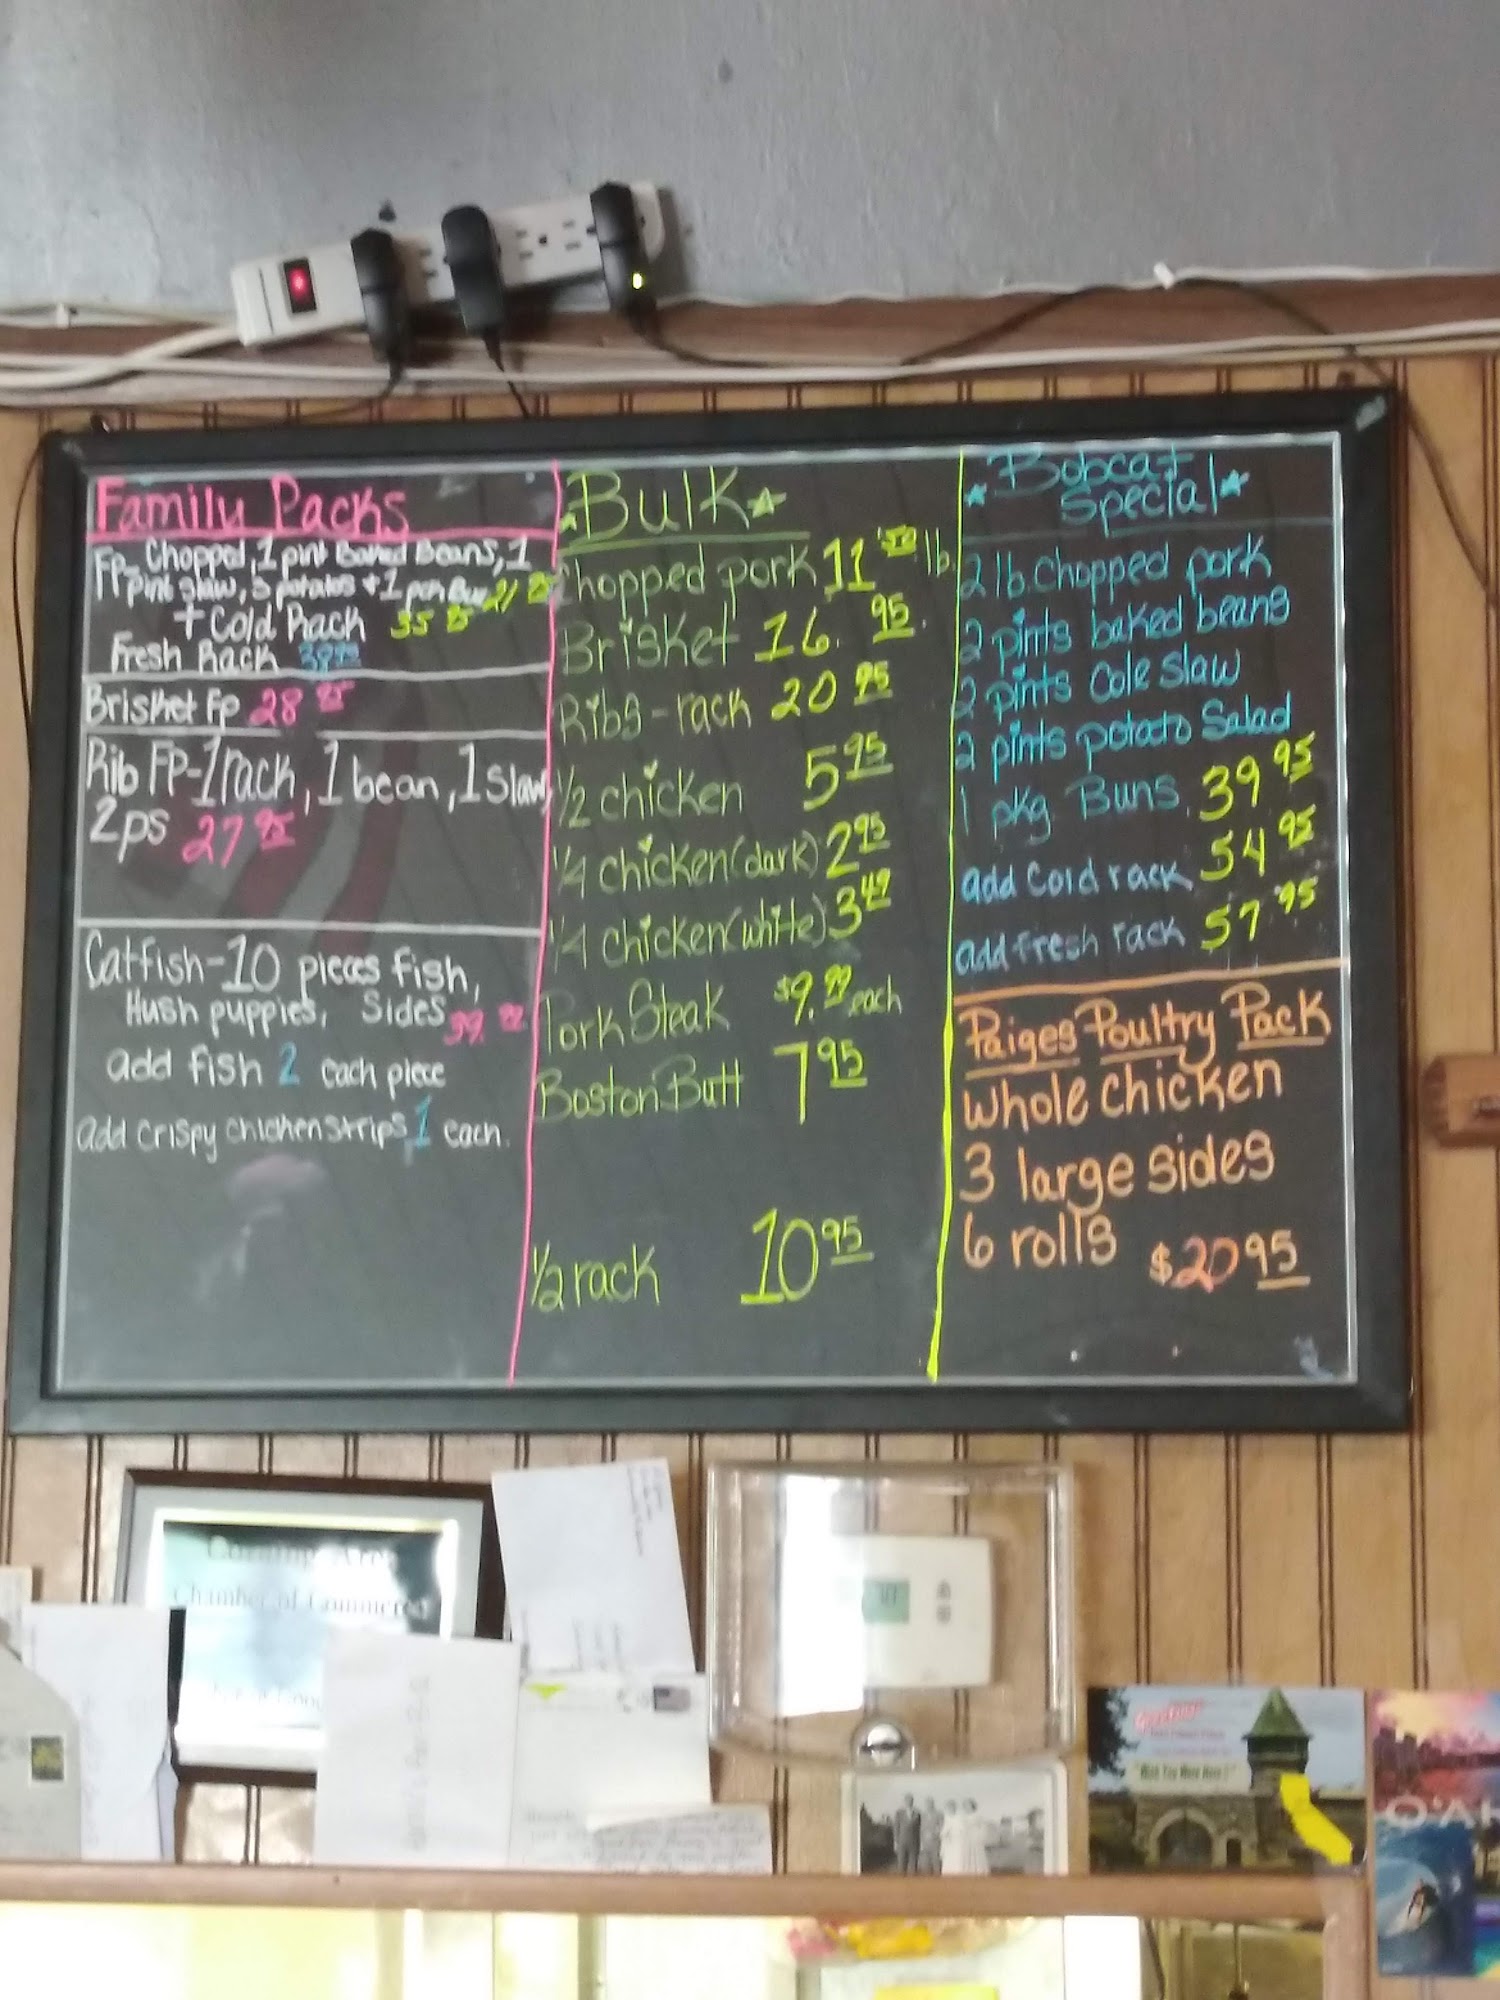 Family Packs
FP- Chopped, 1 pint Baked Beans, 1
pint slaw, 3 potatoes + 1 pan Bun 21 95
+ Cold Rack 35 95
Fresh Rack 38 95
Brisket FP 28 95
Rib FP-1 rack, 1 bean, 1 slaw,
2ps 27 95
Catfish-10 pieces fish,
Hush puppies, Sides 39.
add fish 2 each piece
add crispy chicken strips 1 each.
Bulk
Chopped pork 11 lb.
Brisket 16. 95.
Ribs-rack 20 95
1/2 chicken 5 95
1/4 chicken (dark) 2 95
1/4 chicken (white) 3 49
Pork Steak $9. 99 each
Boston Butt 7 95
1/2 rack 10 95
Bobcat
Special
2 lb. Chopped pork
2 pints baked beans
2 pints Cole slaw
2 pints potato Salad
1 pkg. Buns 39 95
add Cold rack 54 95
add fresh rack 57 95
Paiges Poultry Pack
whole chicken
3 large sides
6 rolls $20 95
Corning Area
Chamber of Commerce
O'AH